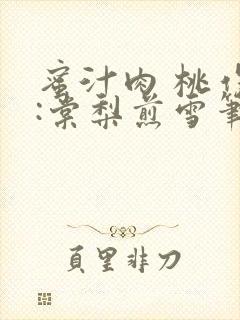 蜜汁肉桃
:棠梨煎雪筆
頁里非刀